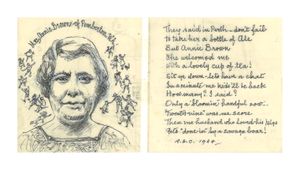 Mrs. Annie Brown of Pemberton, W.A.
They said in Perth - don't fail
to take her a bottle of Ale
But Annie Brown
She welcomed me
With a lovely cup of tea!
Sit ye down - lets have a chat
In a minute me kids'll be back
How many? I said?
Only a bloomin' handful 
'Twenty-nine' was our score
Then me husband who loved his pigs
Gets "done in" by a savage boar!
1964